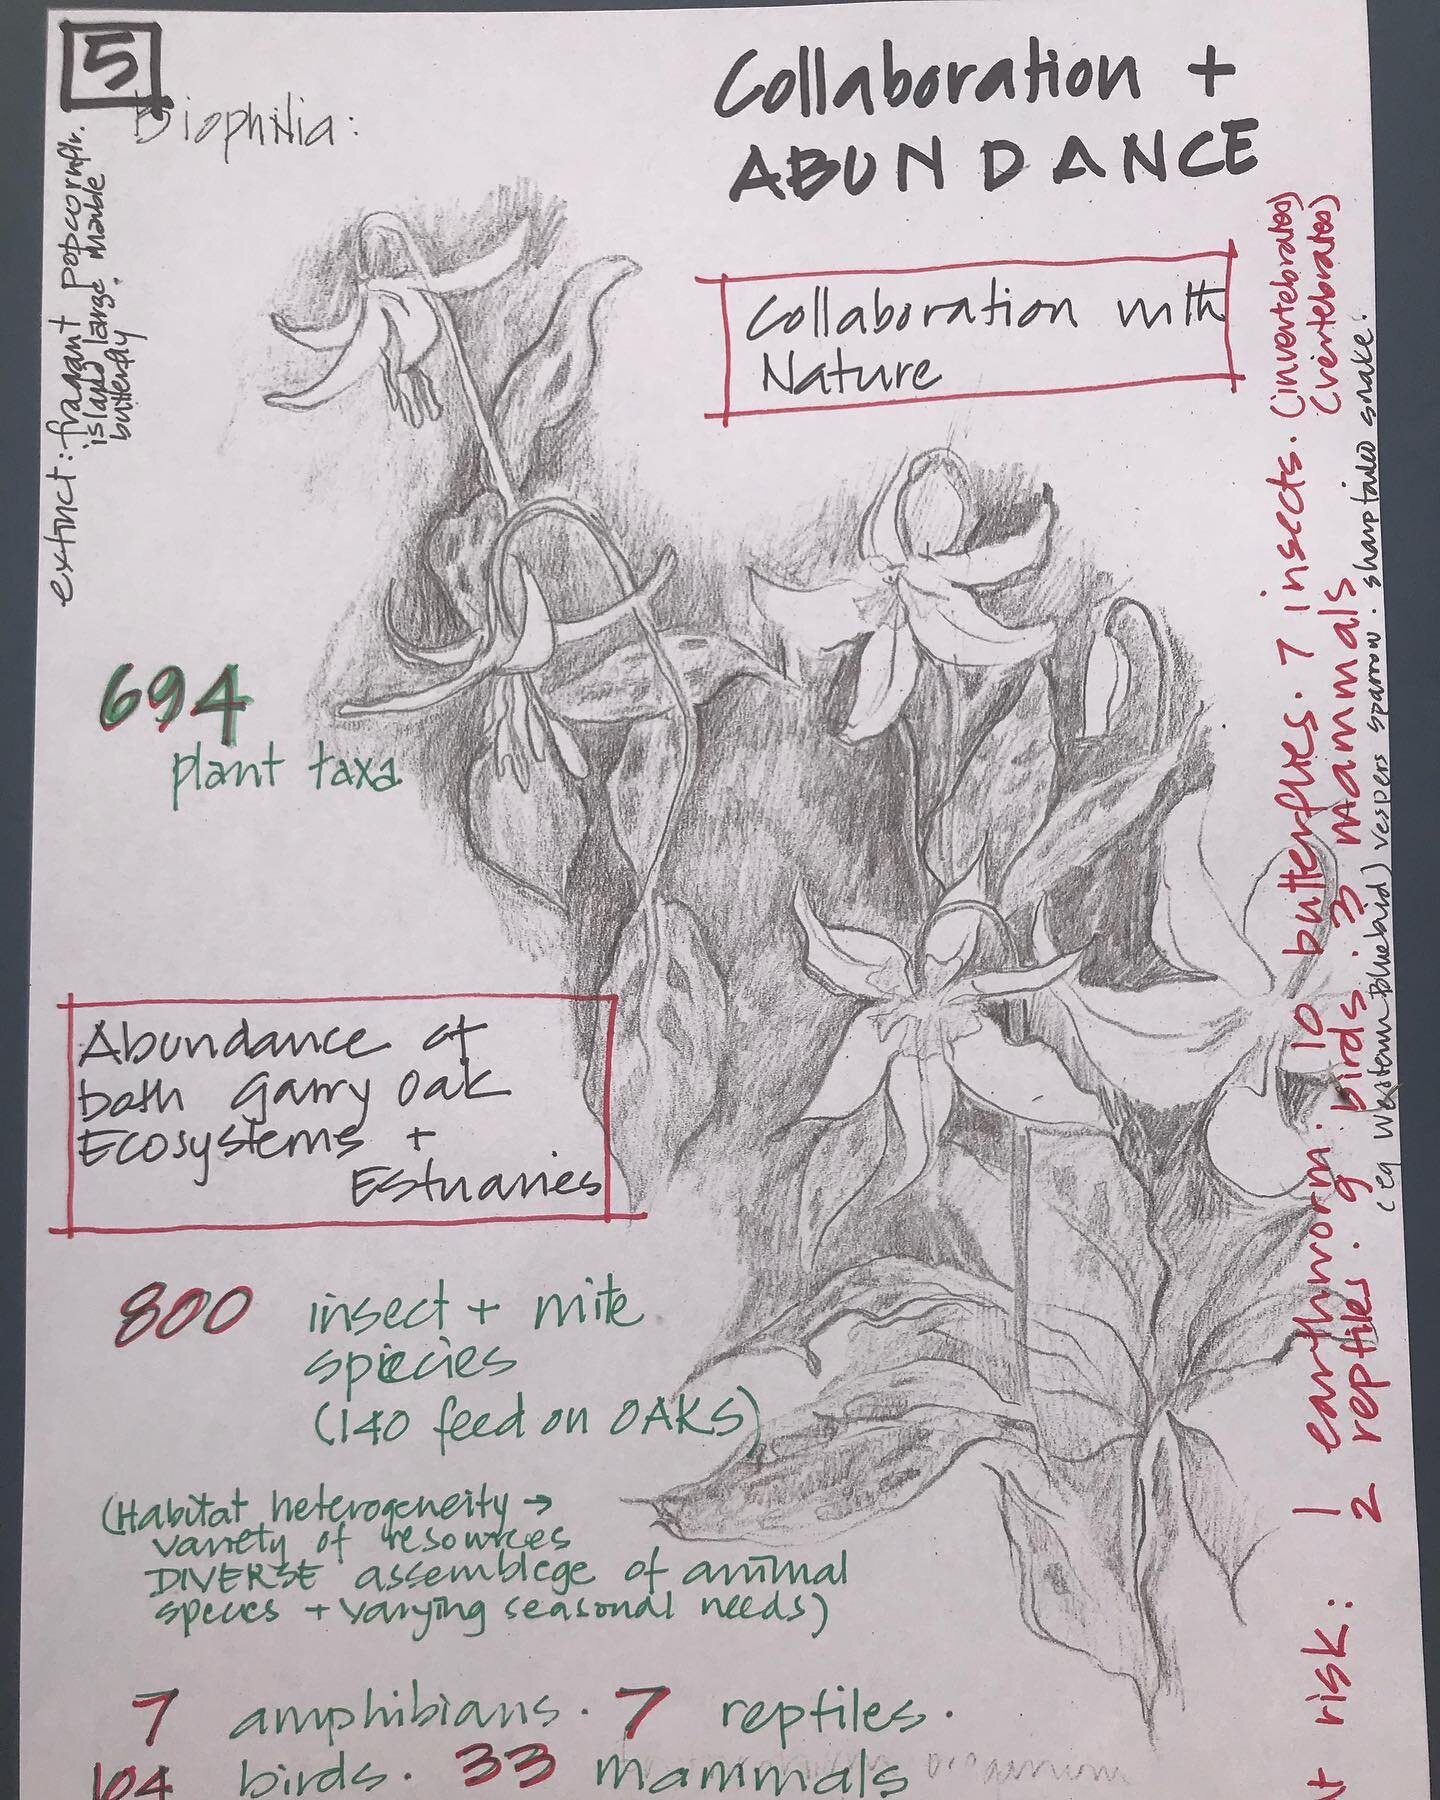 5
Biophilia:
Collaboration +
ABUNDANCE
Collaboration with
Nature
extinct: fragrant popcornflr.
island large marble
butterfly
694
plant taxa
Abundance of
both Garry Oak
Ecosystems +
Estuaries
800 insect + mite
species
(140 feed on OAKS)
(Habitat heterogeneity →
variety of resources
DIVERSE assemblege of animal
species + varying seasonal needs)
7 amphibians. 7 reptiles.
104 birds. 33 mammals
t risk: 1 earthworm. 10 butterflies. 7 insects. (invertebrates)
2 reptiles. 9 birds. 3 mammals (vertebrates)
(eg western bluebird) vespers sparrow. sharptailed snake.